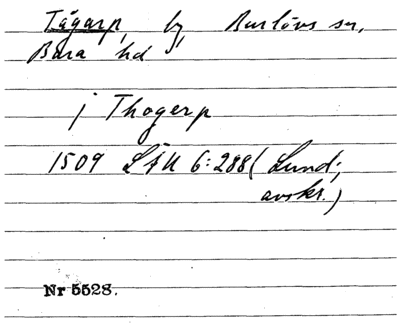 Tågarp, by, Burlövs sn,
Bara hd
j Thogerp
1509 LÄU 6:288 (Lund;
avskr.)
Nr 5528.